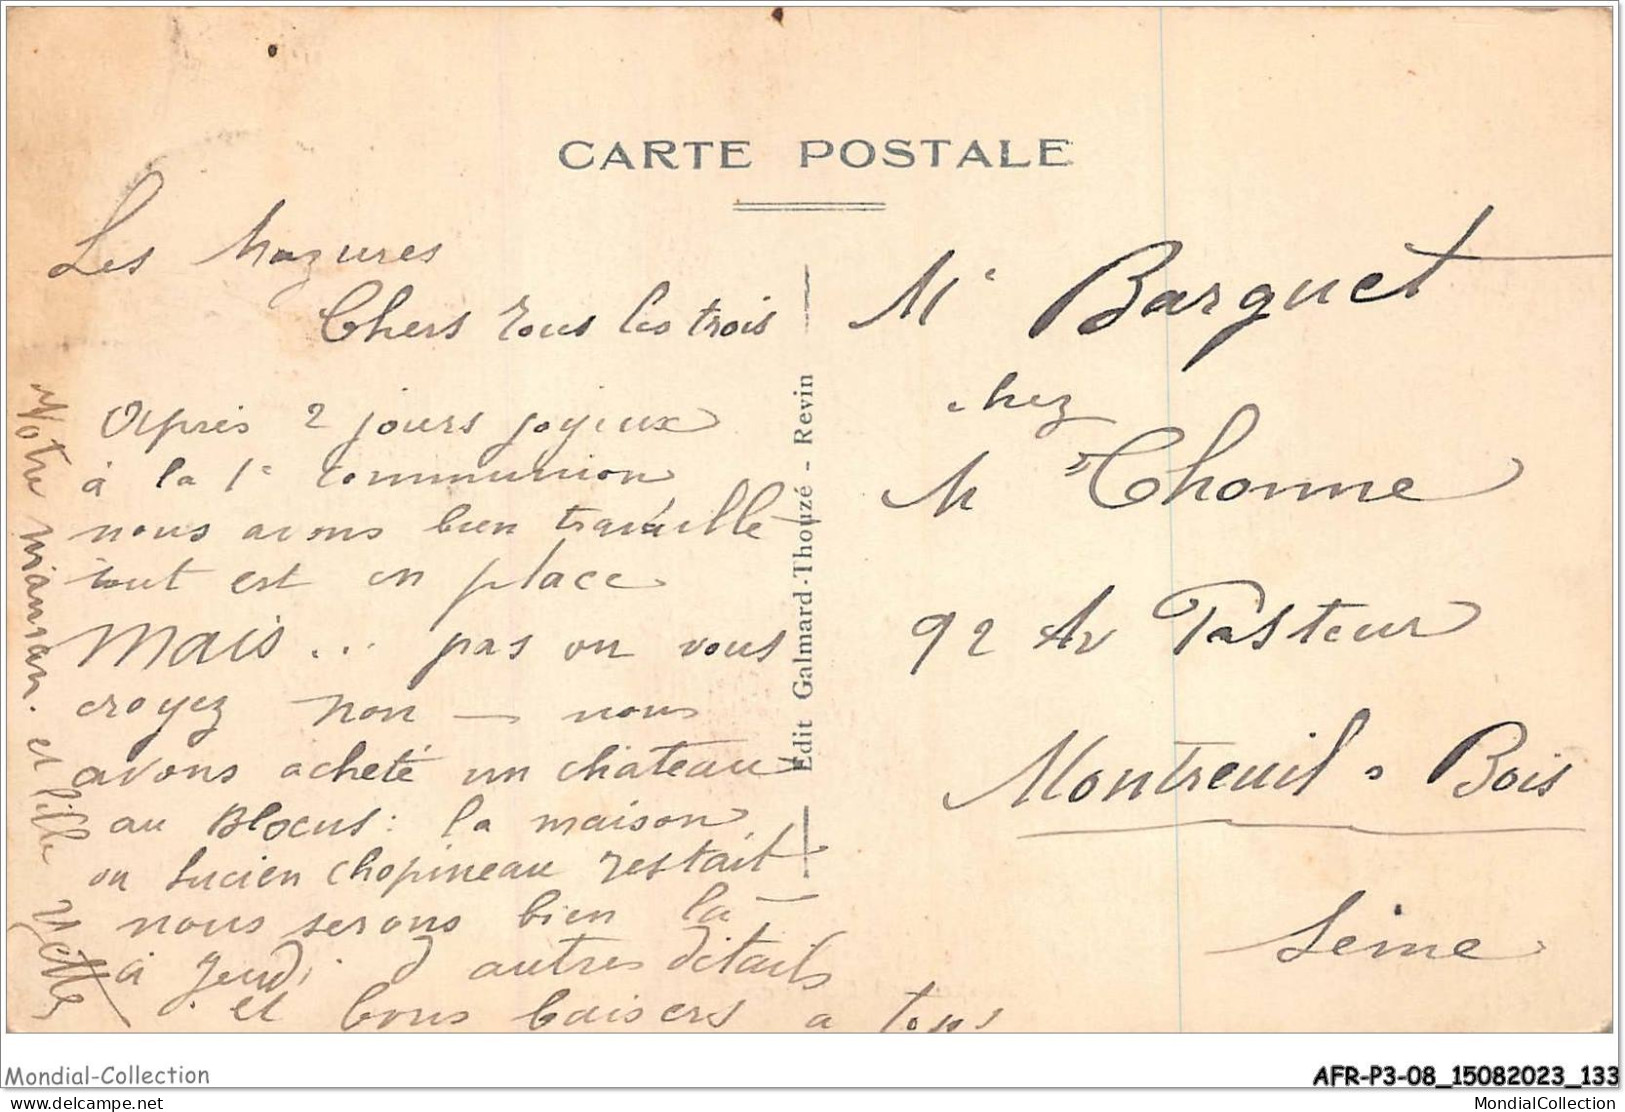 CARTE POSTALE
Les Mazures
Chers tous les trois
Après 2 jours joyeux
à la 1e communion
nous avons bien travaillé
tout est en place
Mais... pas où vous
croyez non — nous
avons acheté un chateau
au Blocus: la maison
ou Lucien Chopineau restait
nous serons bien là —
à jeudi d autres détails
et bons baisers a tous
Votre maman. et fille
Yette
Edit Galmard-Thouzé - Revin
Mr Barquet
chez
M Thomme
92 Av Pasteur
Montreuil s Bois
Seine
Mondial-Collection
AFR-P3-08_15082023_133
delcampe.net
MondialCollection